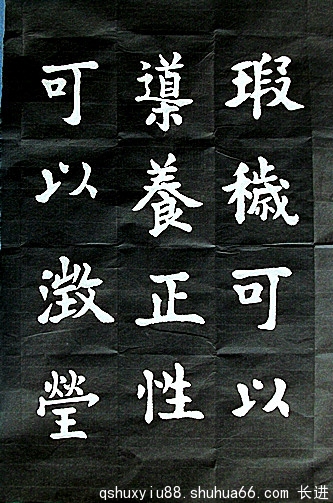 瑕穢可以
導養正性
可以澂瑩
qshuxyiu88.shuhua66.com 长进